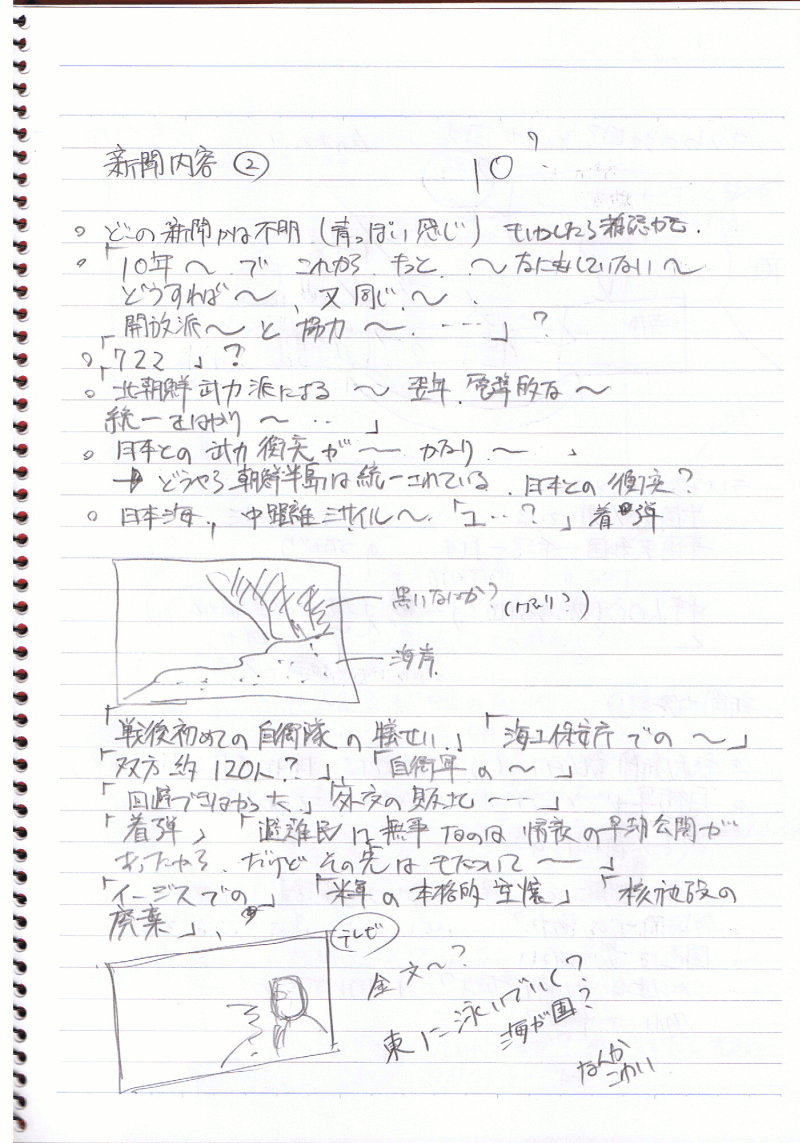 新聞内容 ②
10?
○ どこの新聞かは不明 (青っぽい感じ) もしかしたら雑誌かも.
○ 「10年〜.で これから もっと 〜なにもしていない〜
どうすれば〜、又同じ.〜.
開放派〜と協力〜.---」?
○「722」?
○ 「北朝鮮武力派による 〜 翌年.電撃的な〜
統一をはかり 〜 ‥ 」
○ 日本との武力衝突が〜 かなり.〜 、
→ どうやら朝鮮半島は統一されている.日本との衝突?
○ 日本海, 中距離ミサイル〜.「ユ‥?」着弾
黒いなにか?
(けむり?)
海岸.
「戦後初めての自衛隊の犠せい.」「海上保安庁での〜」
「双方約120人?」、「自衛軍の〜」
「回避できなかった.」「外交の敗北---」
「着弾」「避難民は無事なのは情報の早期公開が
あったから.だけどその先はもたついて〜 」
「イージスでの」「米軍の本格的空爆」「核施設の
廃棄」、
テレビ
金 文〜?
東に泳いでいく?
海が国?
なんか
こわい